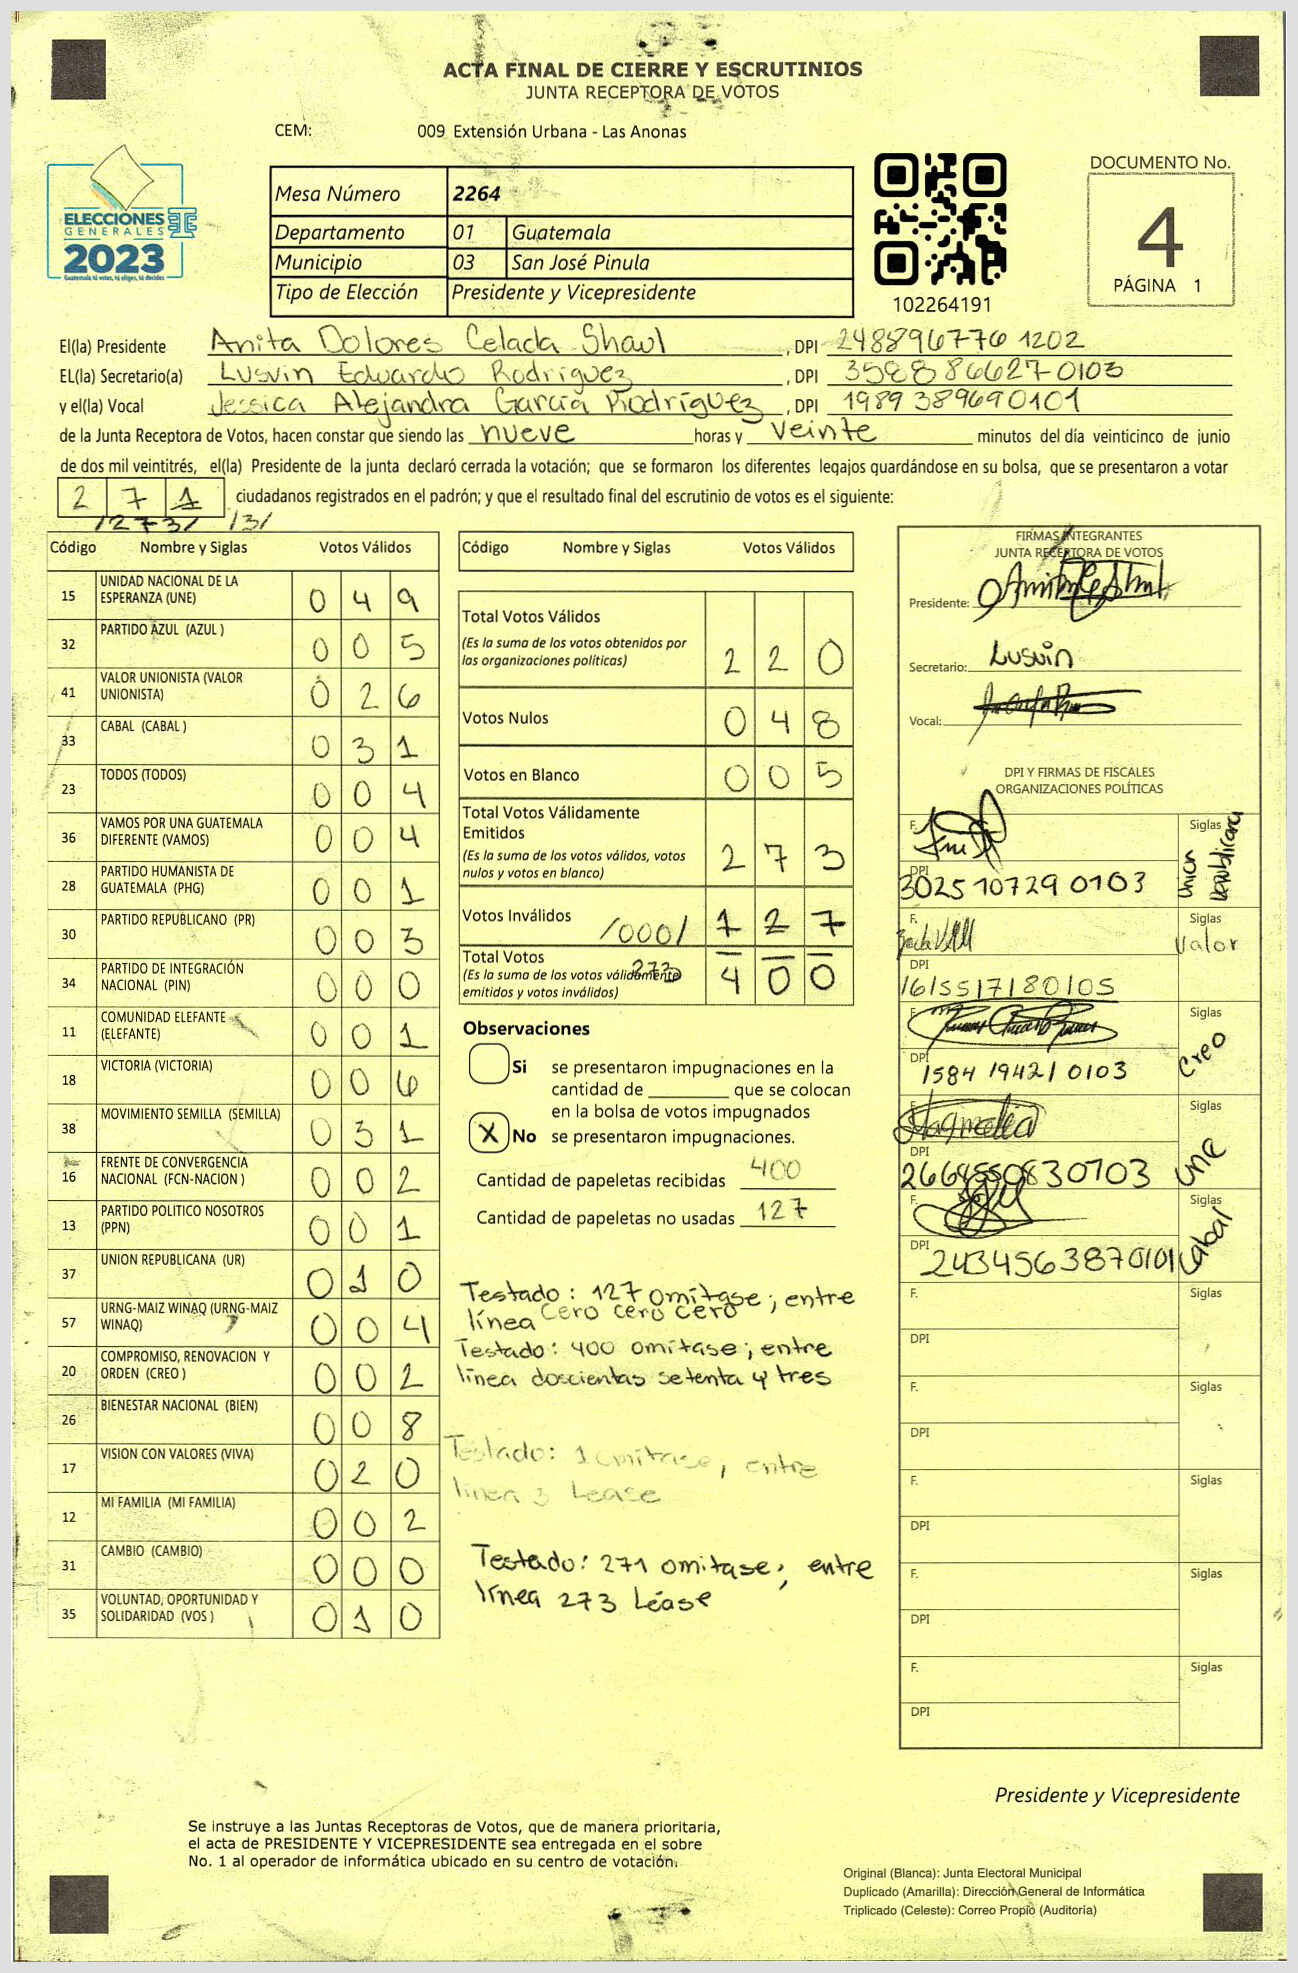 ACTA FINAL DE CIERRE Y ESCRUTINIOS
JUNTA RECEPTORA DE VOTOS
CEM: 009 Extensión Urbana - Las Anonas
ELECCIONES
GENERALES
2023
Guatemala tú votas, tú eliges, tú decides
Mesa Número 2264
Departamento 01 Guatemala
Municipio 03 San José Pinula
Tipo de Elección Presidente y Vicepresidente
102264191
DOCUMENTO No.
4
PÁGINA 1
El(la) Presidente Anita Dolores Celada Shaul, DPI 248896776 1202
EL(la) Secretario(a) Lusvin Eduardo Rodriguez, DPI 3588866270103
y el(la) Vocal Jessica Alejandra García Rodríguez, DPI 1989389690101
de la Junta Receptora de Votos, hacen constar que siendo las nueve horas y veinte minutos del día veinticinco de junio
de dos mil veintitrés, el(la) Presidente de la junta declaró cerrada la votación; que se formaron los diferentes legajos guardándose en su bolsa, que se presentaron a votar
2 7 1 ciudadanos registrados en el padrón; y que el resultado final del escrutinio de votos es el siguiente:
/273/ /3/
Código Nombre y Siglas Votos Válidos
15 UNIDAD NACIONAL DE LA ESPERANZA (UNE) 0 4 9
32 PARTIDO AZUL (AZUL ) 0 0 5
41 VALOR UNIONISTA (VALOR UNIONISTA) 0 2 6
33 CABAL (CABAL ) 0 3 1
23 TODOS (TODOS) 0 0 4
36 VAMOS POR UNA GUATEMALA DIFERENTE (VAMOS) 0 0 4
28 PARTIDO HUMANISTA DE GUATEMALA (PHG) 0 0 1
30 PARTIDO REPUBLICANO (PR) 0 0 3
34 PARTIDO DE INTEGRACIÓN NACIONAL (PIN) 0 0 0
11 COMUNIDAD ELEFANTE (ELEFANTE) 0 0 1
18 VICTORIA (VICTORIA) 0 0 6
38 MOVIMIENTO SEMILLA (SEMILLA) 0 3 1
16 FRENTE DE CONVERGENCIA NACIONAL (FCN-NACION ) 0 0 2
13 PARTIDO POLITICO NOSOTROS (PPN) 0 0 1
37 UNION REPUBLICANA (UR) 0 1 0
57 URNG-MAIZ WINAQ (URNG-MAIZ WINAQ) 0 0 4
20 COMPROMISO, RENOVACION Y ORDEN (CREO ) 0 0 2
26 BIENESTAR NACIONAL (BIEN) 0 0 8
17 VISION CON VALORES (VIVA) 0 2 0
12 MI FAMILIA (MI FAMILIA) 0 0 2
31 CAMBIO (CAMBIO) 0 0 0
35 VOLUNTAD, OPORTUNIDAD Y SOLIDARIDAD (VOS ) 0 1 0
Código Nombre y Siglas Votos Válidos
Total Votos Válidos
(Es la suma de los votos obtenidos por
las organizaciones políticas) 2 2 0
Votos Nulos 0 4 8
Votos en Blanco 0 0 5
Total Votos Válidamente
Emitidos
(Es la suma de los votos válidos, votos
nulos y votos en blanco) 2 7 3
Votos Inválidos /000/ 1 2 7
Total Votos
(Es la suma de los votos válidamente
emitidos y votos inválidos) 273 4 0 0
Observaciones
Si se presentaron impugnaciones en la
cantidad de ________ que se colocan
en la bolsa de votos impugnados
X No se presentaron impugnaciones.
Cantidad de papeletas recibidas 400
Cantidad de papeletas no usadas 127
Testado: 127 omítase; entre
línea cero cero cero
Testado: 400 omítase; entre
línea doscientas setenta y tres
Testado: 1 omitase, entre
linea 3 Lease
Testado: 271 omítase; entre
línea 273 Léase
FIRMAS INTEGRANTES
JUNTA RECEPTORA DE VOTOS
Presidente:
Secretario: Lusvin
Vocal:
DPI Y FIRMAS DE FISCALES
ORGANIZACIONES POLÍTICAS
F. Siglas Union Republicana
DPI 3025107290103
F. Siglas Valor
DPI 1615517180105
F. Siglas Creo
DPI 1584 19421 0103
F. Siglas Une
DPI
F. Siglas Cabal
DPI 2434563870101
F. Siglas
DPI
F. Siglas
DPI
F. Siglas
DPI
F. Siglas
DPI
F. Siglas
DPI
Presidente y Vicepresidente
Se instruye a las Juntas Receptoras de Votos, que de manera prioritaria,
el acta de PRESIDENTE Y VICEPRESIDENTE sea entregada en el sobre
No. 1 al operador de informática ubicado en su centro de votación.
Original (Blanca): Junta Electoral Municipal
Duplicado (Amarilla): Dirección General de Informática
Triplicado (Celeste): Correo Propio (Auditoría)